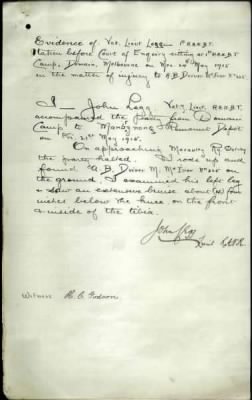 Evidence of Vet. Lieut Legg 1st R.A.N.B.T.
taken before Court of Enquiry sitting at
Camp, Domain, Melbourne on Mon 24th May 1915
in the matter of injury to A.B. Driver
I John Legg Vety. Lieut. R.A.N.B.T.
accompanied the party from Domain
Camp to Maribyrnong Remount Depot
on the 21st May 1915.
On approaching Macaulay Ry Station
the party halted. I rode up and
found A.B. Driver M. McIver on
the ground. I examined his left leg
& saw an extensive bruise about (4) four
inches below the knee on the front
& inside of the tibia.
John Legg
Lieut
Witness